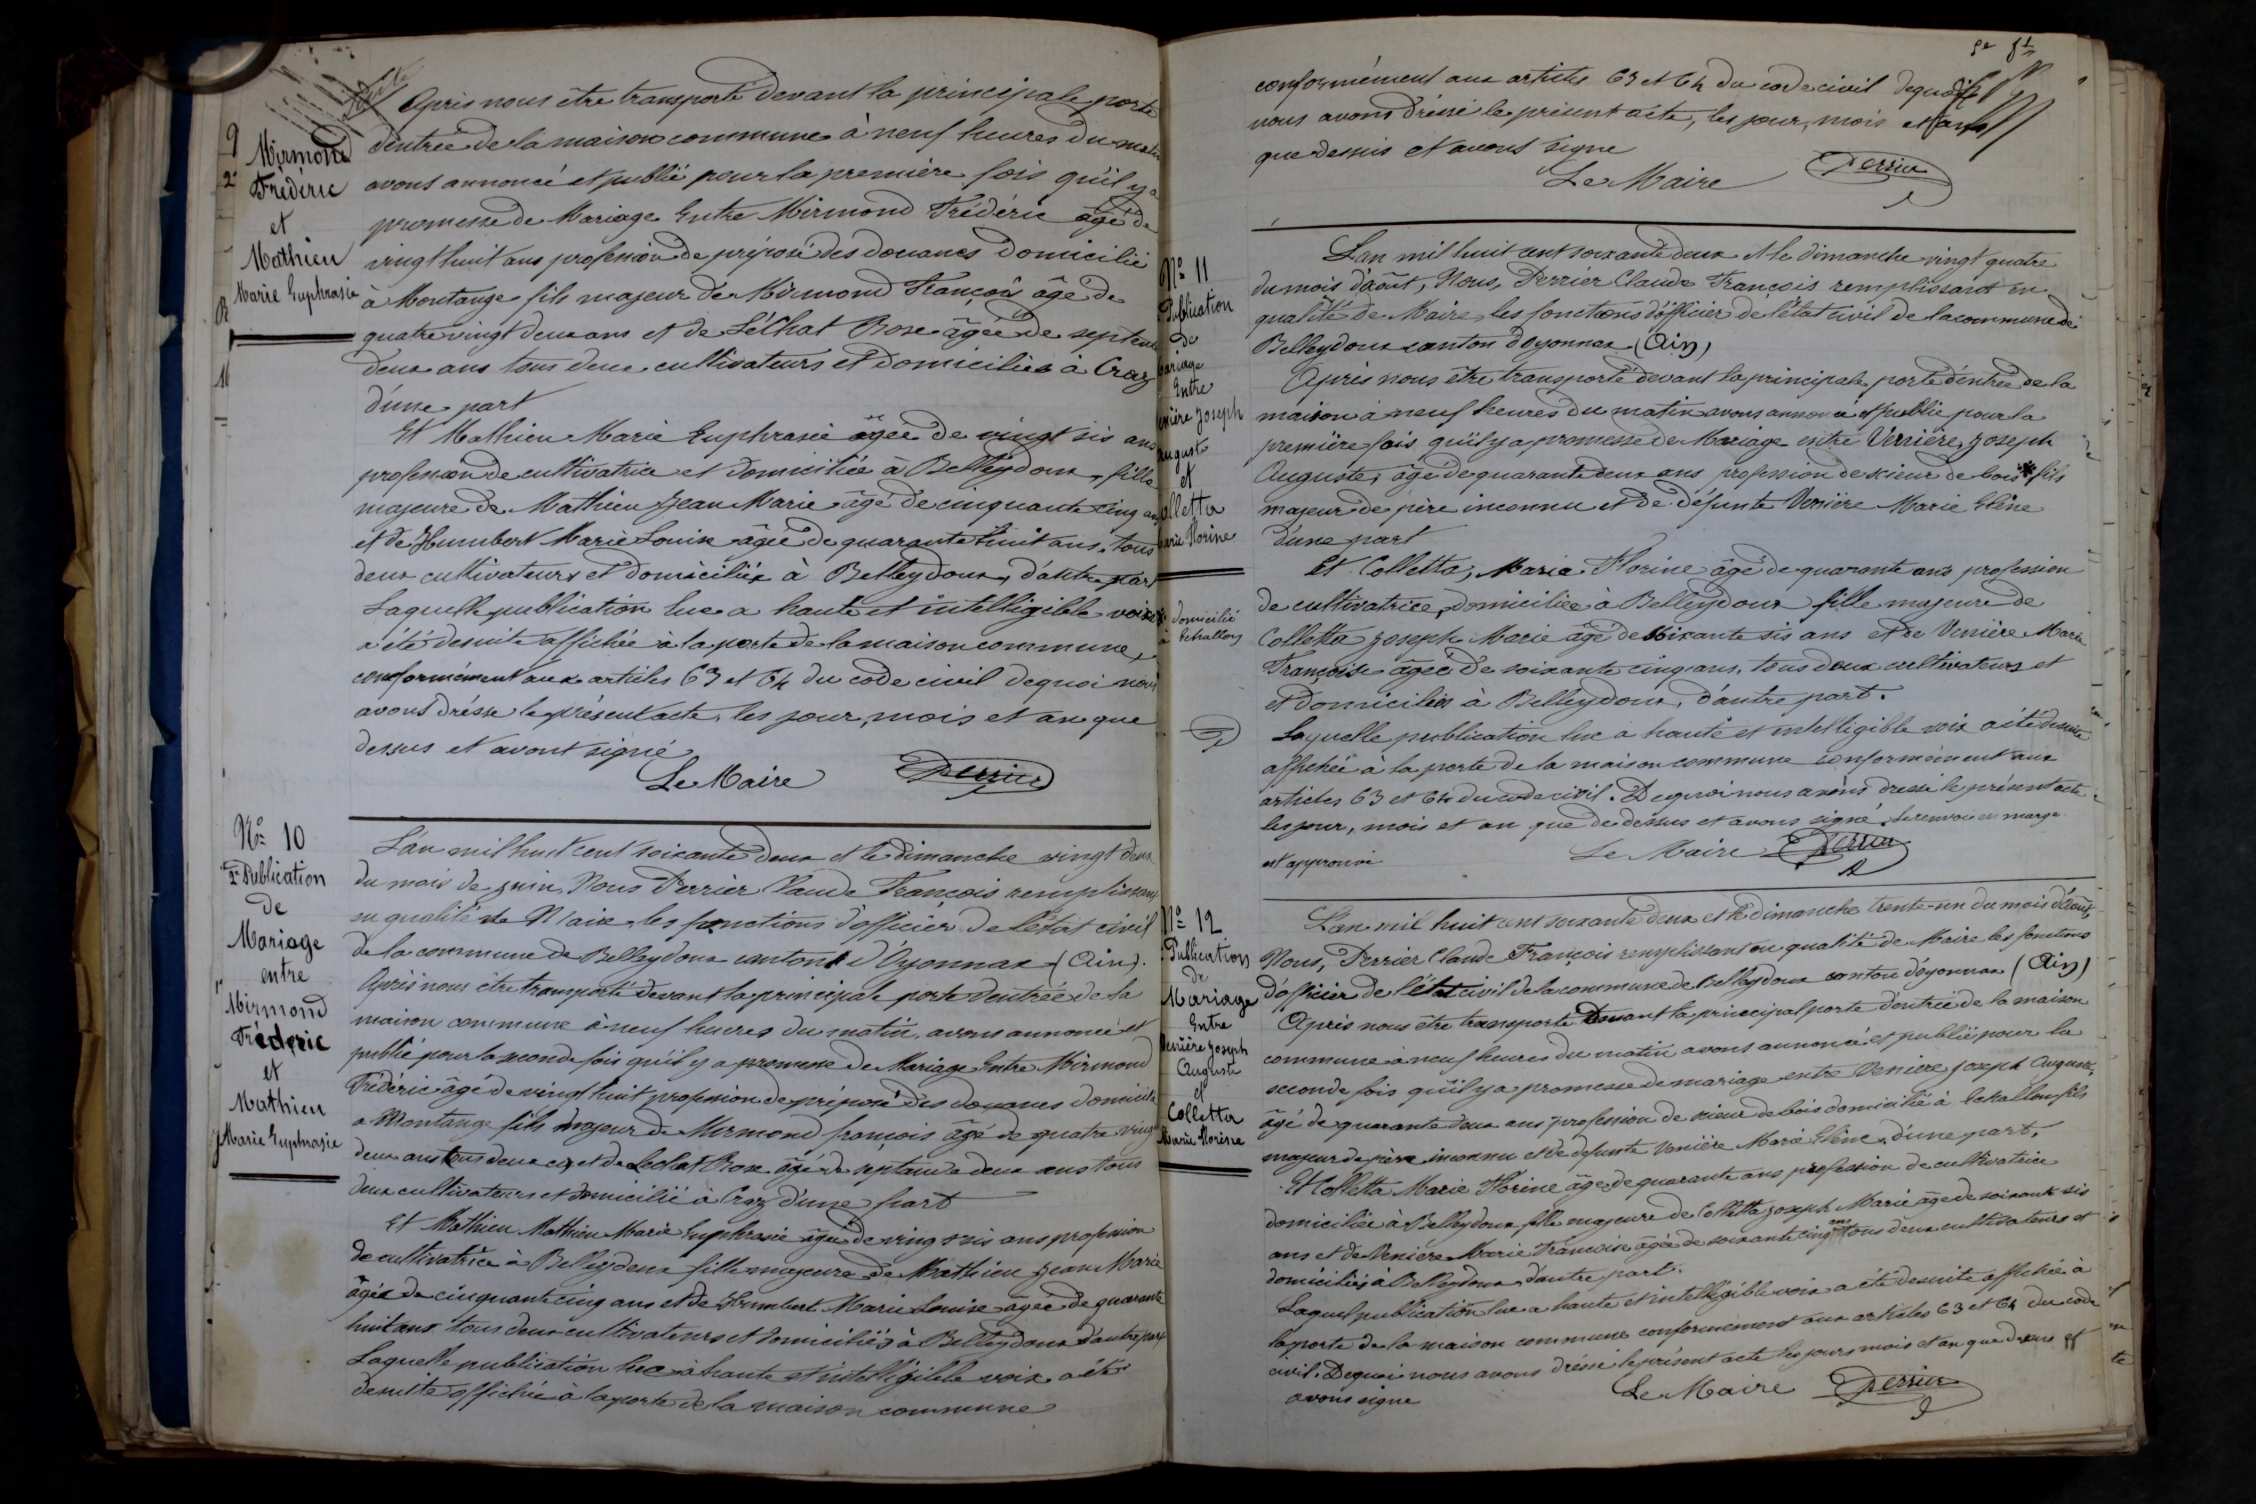 9
Mirmond
Frédéric
et
Mathieu
Marie Euphrasie
Après nous être transporté devant la principale porte
d'entrée de la maison commune à neuf heures du matin
avons annoncé et publié pour la première fois qu'il y a
promesse de Mariage Entre Mirmond Frédéric âgé de
vingt huit ans profession de préposé des douanes domicilié
à Montange fils majeur de Mirmond François âgé de
quatre vingt deux ans et de Léchat Rose âgée de septente
deux ans tous deux cultivateurs et domiciliés à Craz
d'une part
Et Mathieu Marie Euphrasie âgée de vingt six ans
profession de cultivatrice et domiciliée à Belleydoux, fille
majeure de Mathieu Jean Marie âgé de cinquante cinq ans
et de Humbert Marie Louise âgée de quarante huit ans, tous
deux cultivateurs et domiciliés à Belleydoux, d'autre part
Laquelle publication lue a haute et intelligible voix
a été desuite affichée à la porte de la maison commune,
conformément aux articles 63 et 64 du code civil dequoi nous
avons dréssé le présent acte, les jour, mois et an que
dessus et avont signé
Le Maire Perrier
No 10
2e Publication
de
Mariage
entre
Mirmond
Fréderic
et
Mathieu
Marie Euphrasie
L'an mil huit cent soixante deux et le dimanche vingt deux
du mois de juin Nous Perrier Claude François remplissant
en qualité de Maire les fonctions d'officier de l'état civil
de la commune de Belleydoux canton d'Oyonnax (Ain).
Après nous être transporté devant la principale porte d'entrée de la
maison commune à neuf heures du matin avons annoncé et
publié pour la seconde fois qu'il y a promesse de Mariage Entre Mirmond
Frédéric âgé de vingt huit profession de préposé des douanes domicilié
a Montange fils majeur de Mirmond françois âgé de quatre vingt
deux ans tous deux et de Lechat Rose âgé de septante deux ans tous
deux cultivateurs et domicilié à Craz d'une part
Et Mathieu Mathieu Marie Euphrasie âgée de vingt six ans profession
de cultivatrice à Belleydoux fille majeure de Mathieu Jean Marie
âgée de cinquante cinq ans et de Humbert Marie Louise âgée de quarante
huit ans tous deux cultivateurs et domiciliés à Belleydoux d'autre part
Laquelle publication lue à haute et intelligible voix a été
desuite affichée à la porte de la maison commune
conformément aux articles 63 et 64 du code civil dequoi
nous avons dréssé le présent acte, les jour, mois et ans
que dessus et avons signe
Le Maire Perrier
No 11
Publication
de
Mariage
Entre
Joseph
Auguste
et
Colletta
Marie Florine
domicilié
à Echallon
L'an mil huit cent soixante deux et le dimanche vingt quatre
du mois d'août, Nous, Perrier Claude François remplissant en
qualité de Maire les fonctions d'officier de l'état civil de la commune de
Belleydoux canton d'Oyonnax (Ain)
Après nous être transporté devant la principale porte d'entrée de la
maison à neuf heures du matin avons annoncé et publié pour la
première fois qu'il y a promesse de Mariage entre Venière, Joseph
Auguste, âgé de quarante deux ans profession de scieur de bois fils
majeur de père inconnu et de défunte Venière Marie Hélène
d'une part
Et Colletta, Marie Florine âgé de quarante ans profession
de cultivatrice, domiciliée à Belleydoux fille majeure de
Colletta Joseph Marie âgé de soixante six ans et de Venière Marie
Françoise âgée de soixante cinq ans, tous deux cultivateurs et
et domiciliés à Belleydoux, d'autre part.
Laquelle publication lue a haute et intelligible voix a été desuite
affichée à la porte de la maison commune conformément aux
articles 63 et 64 du code civil. Dequoi nous avons dressé le présent acte
les jour, mois et an que de dessus et avons signé. Le renvoi en marge
est approuvé
Le Maire Perrier
No 12
Publication
de
Mariage
Entre
Venière Joseph
Auguste
et
Colletta
Marie Florine
L'an mil huit cent soixante deux et le dimanche trente-un du mois d'août,
Nous, Perrier Claude François remplissant en qualité de Maire les fonctions
d'officier de l'état civil de la commune de Belleydoux canton d'Oyonnax (Ain)
Après nous être transporté devant la principal porte d'entrée de la maison
commune à neuf heures du matin avons annoncé et publié pour la
seconde fois qu'il y a promesse de mariage entre Venière Joseph Auguste,
âgé de quarante deux ans profession de scieur de bois domicilié à Echallon fils
majeur de père inconnu et de defunte Venière Marie Hélène, d'une part.
Et Colletta Marie Florine âgé de quarante ans profession de cultivatrice
domiciliée à Belleydoux fille majeure de Colletta Joseph Marie âgé de soixante six
ans et de Venière Marie Françoise âgée de soixante cinq ans tous deux cultivateurs et
domiciliés à Belleydoux d'autre part.
Laquel publication lue a haute et intelligible voix a été desuite affichée à
la porte de la maison commune conformément aux articles 63 et 64 du code
civil. Dequoi nous avons dréssé le présent acte les jours mois et an que dessus et
avons signe
Le Maire Perrier